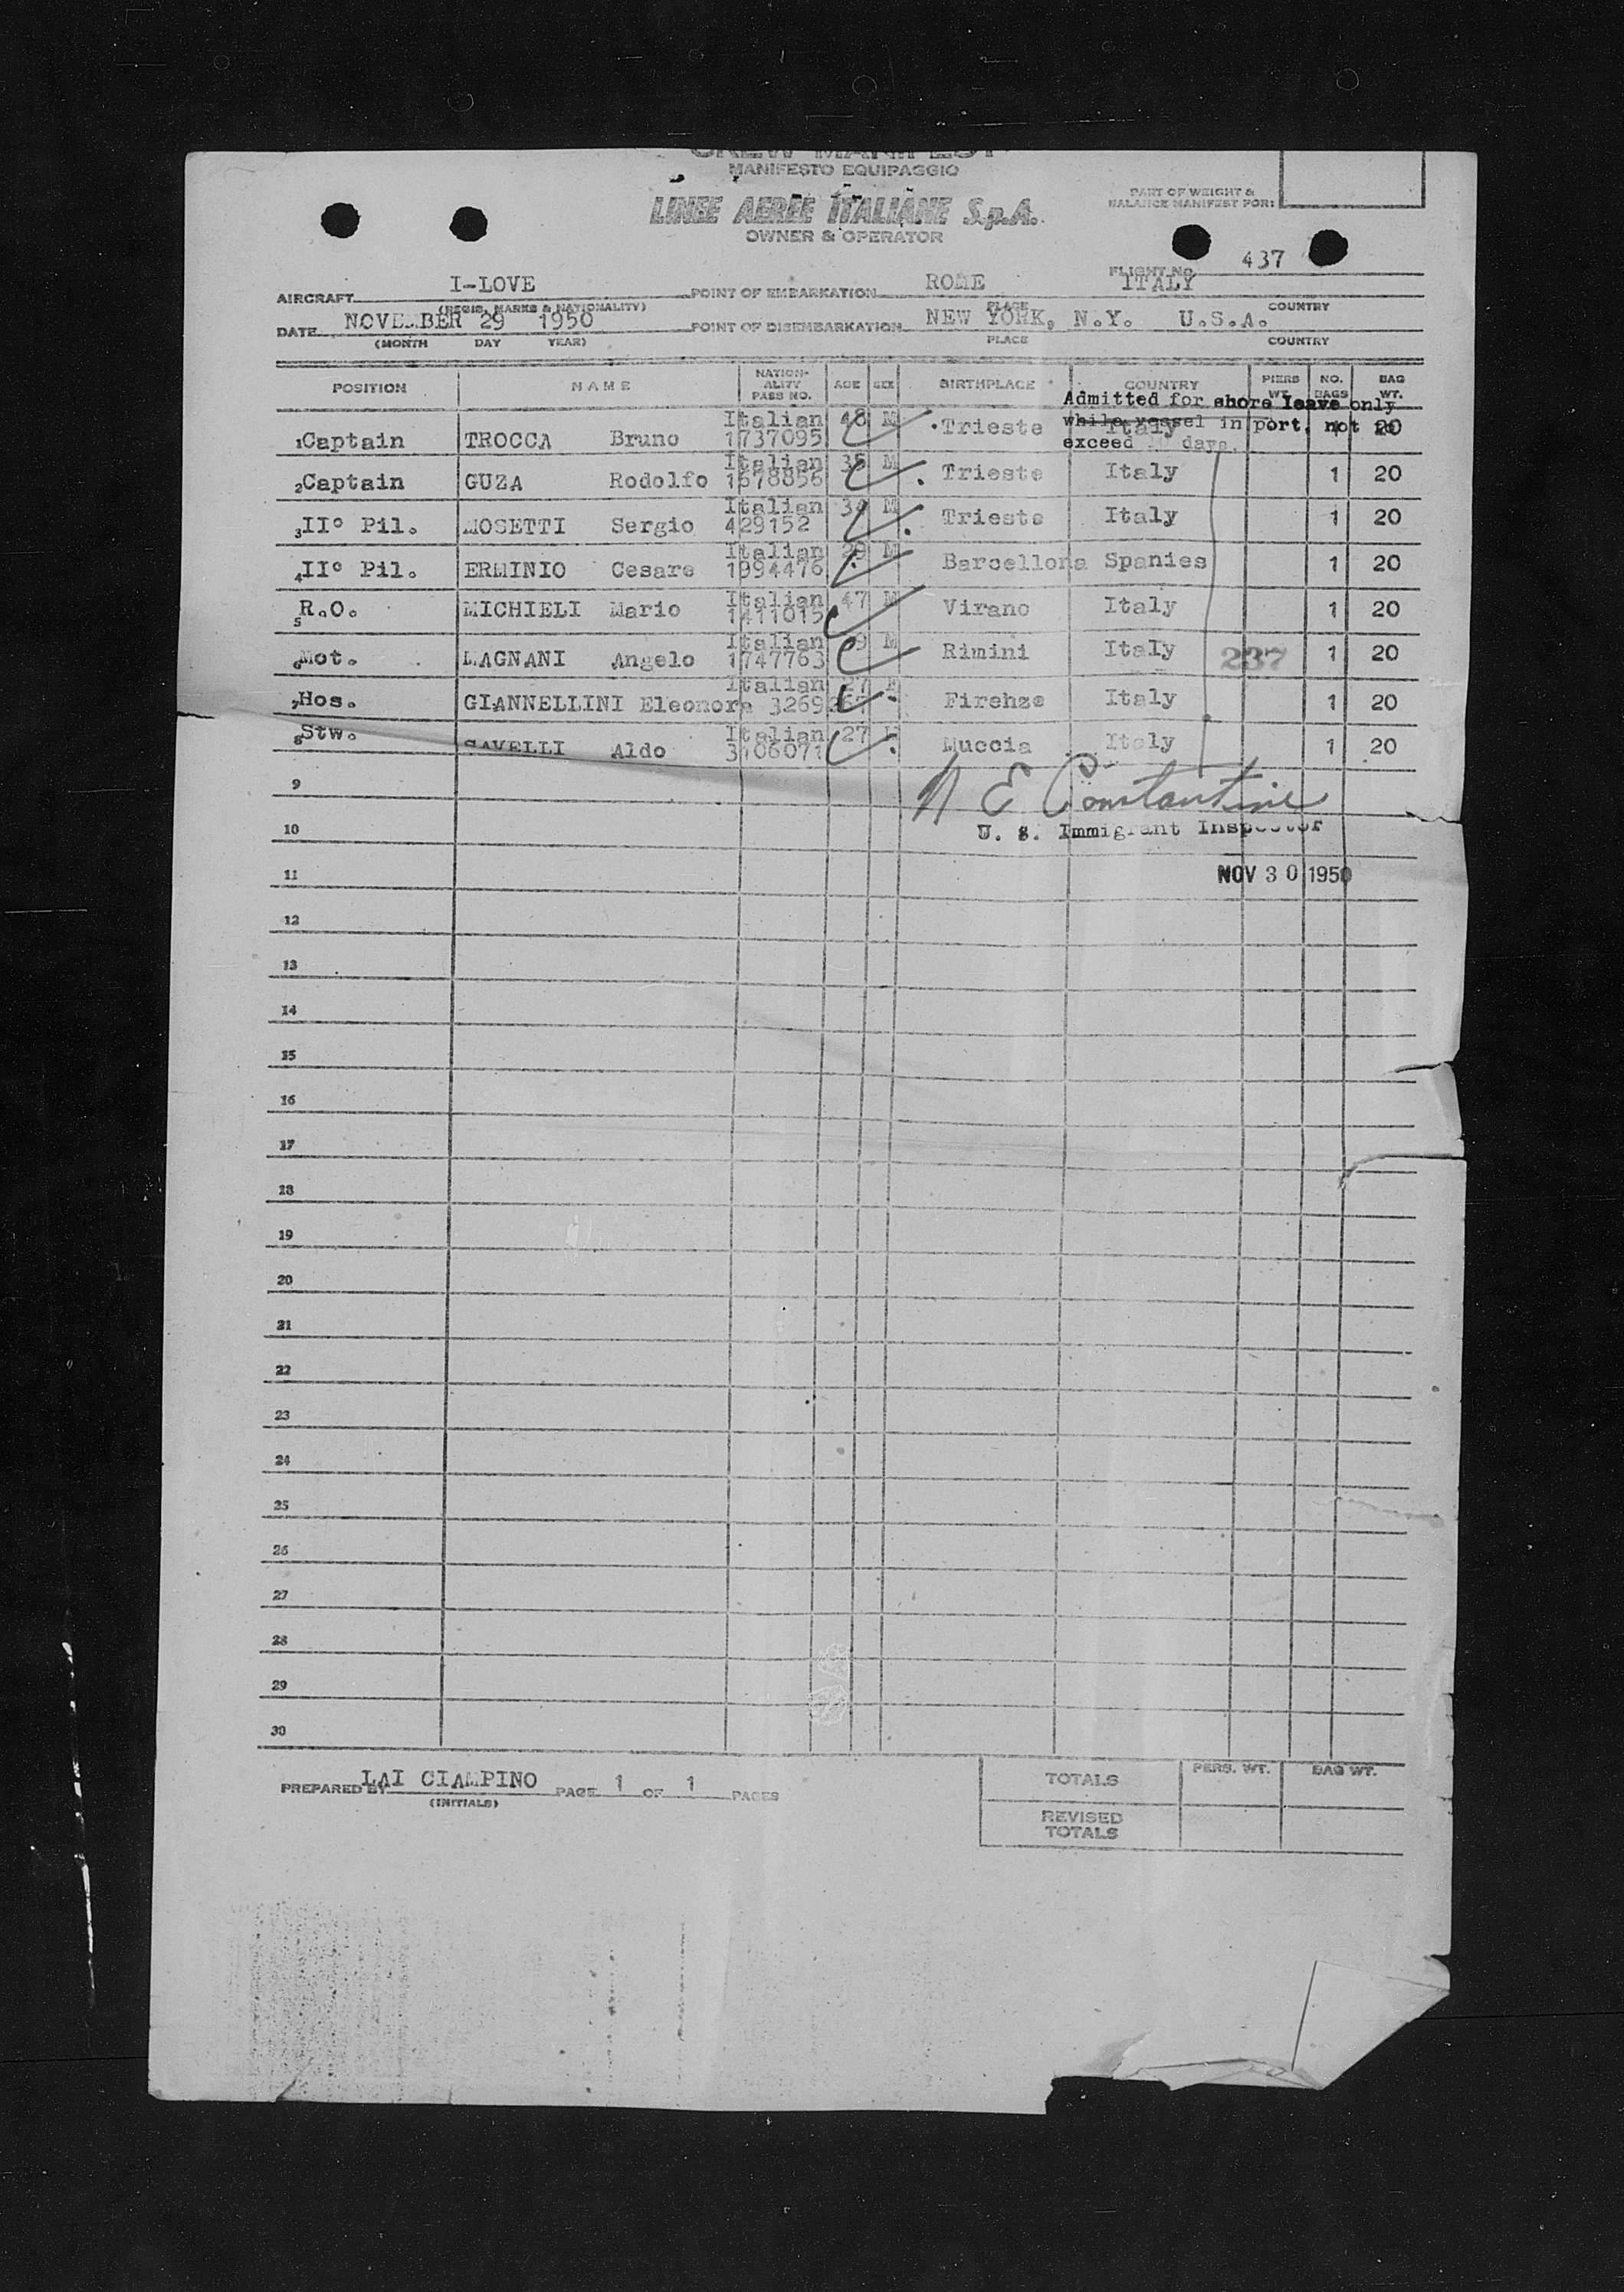 CREW MANIFEST
MANIFESTO EQUIPAGGIO
LINEE AEREE ITALIANE S.p.A.
OWNER & OPERATOR
PART OF WEIGHT &
BALANCE MANIFEST FOR:
FLIGHT No. 437
AIRCRAFT I-LOVE POINT OF EMBARKATION ROME ITALY
(REGIS, MARKS & NATIONALITY) PLACE COUNTRY
DATE NOVEMBER 29 1950 POINT OF DISEMBARKATION NEW YORK, N.Y. U.S.A.
(MONTH DAY YEAR) PLACE COUNTRY
POSITION NAME NATION-ALITY PASS NO. AGE SEX BIRTHPLACE COUNTRY PIERS WT. NO. BAGS BAG WT.
Admitted for shore leave only
while vessel in port, not to
exceed days.
1 Captain TROCCA Bruno Italian 1737095 48 M Trieste Italy 1 20
2 Captain GUZA Rodolfo Italian 1678856 M Trieste Italy 1 20
3 IIº Pil. MOSETTI Sergio Italian 429152 34 M Trieste Italy 1 20
4 IIº Pil. ERMINIO Cesare Italian 1994476 29 M Barcellona Spanies 1 20
5 R.O. MICHIELI Mario Italian 1411015 47 M Virano Italy 1 20
6 Mot. MAGNANI Angelo Italian 1747763 M Rimini Italy 237 1 20
7 Hos. GIANNELLINI Eleonora Italian 27 F Firenze Italy 1 20
8 Stw. SAVELLI Aldo Italian 3106071 27 Muccia Italy 1 20
9 N E Constantine
10 U. S. Immigrant Inspector
11 NOV 30 1950
12
13
14
15
16
17
18
19
20
21
22
23
24
25
26
27
28
29
30
PREPARED BY LAI CIAMPINO PAGE 1 OF 1 PAGES
(INITIALS)
TOTALS PERS. WT. BAG WT.
REVISED
TOTALS